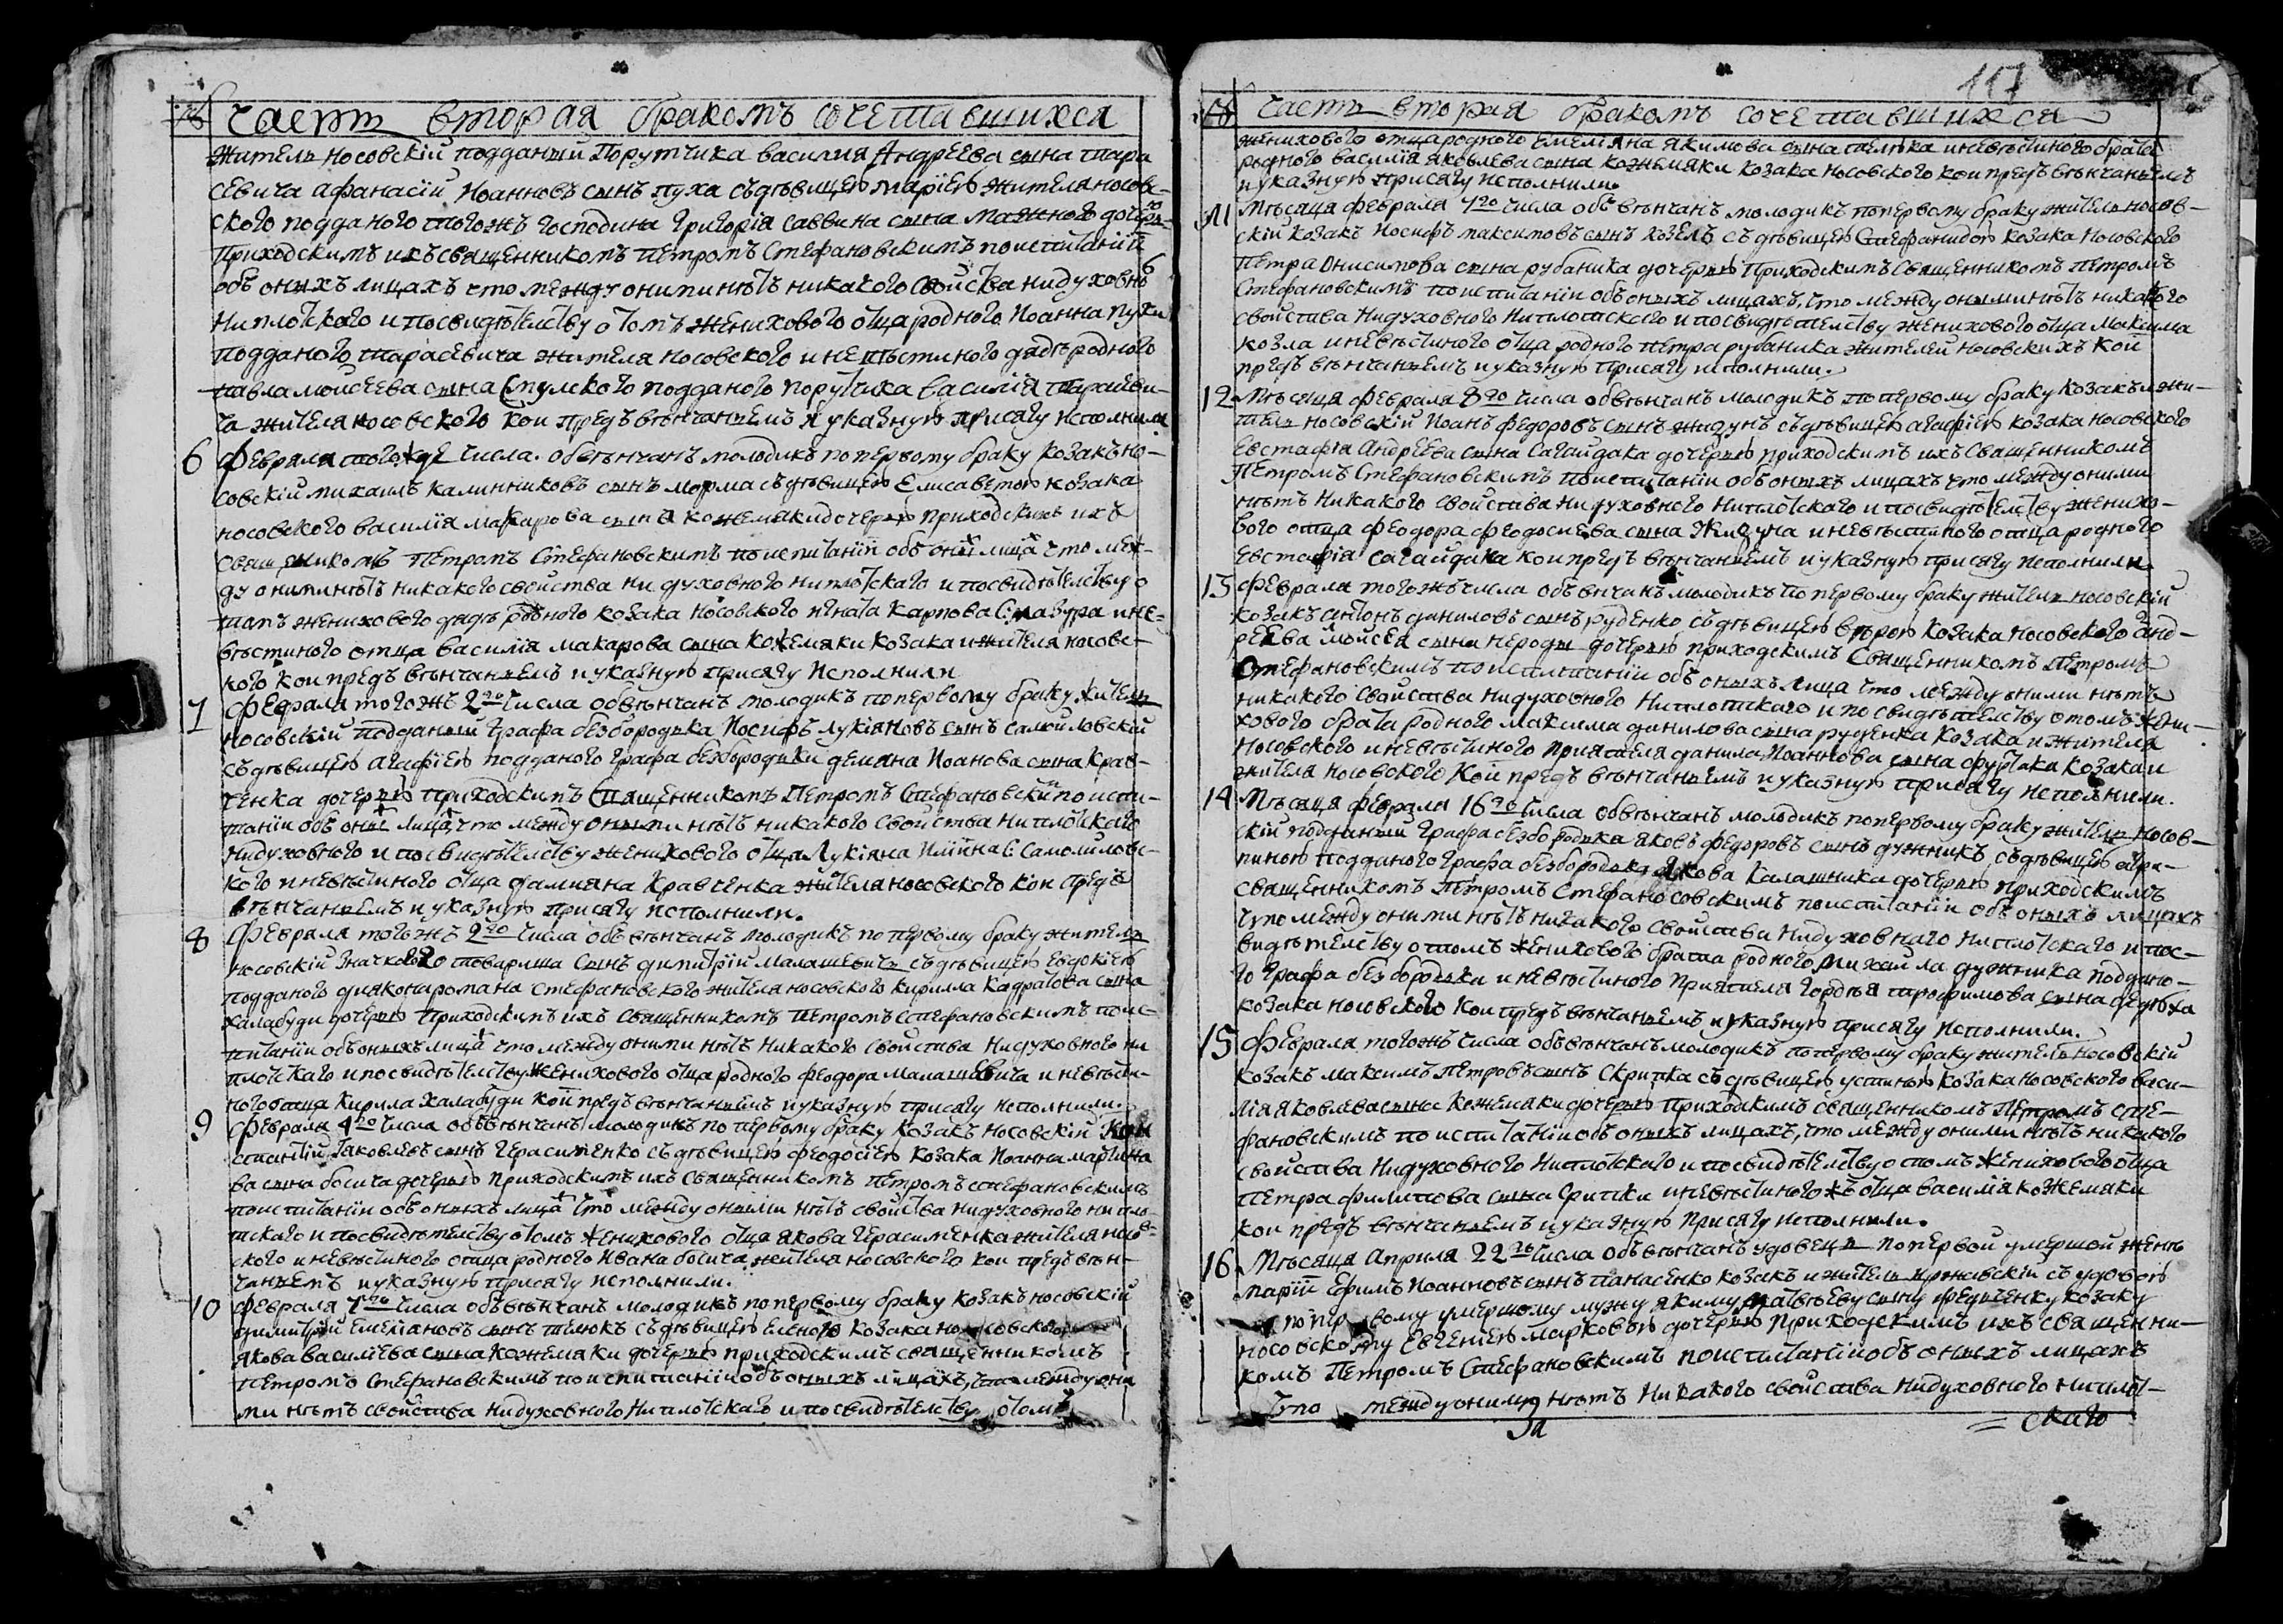 № часть вторая бракомъ сочетавшихся
житель носовскій подданный Порутчика василия Андреева сына тара
севича афанасій Иоанновъ сынъ пуха съ дѣвицею марією жителя носовс-
ского подданого тогожъ господина григорія саввина сына мажного дочерю
Приходскимъ ихъ священникомъ Петромъ Стефановскимъ поиспитаніи
объ оныхъ лицахъ что между оними нѣтъ никакого свойства ни духовно
ни плотского и посвидѣтелству отомъ женихового отца родного Иоанна пухи
подданого тарасевича жителя носовского и невѣстиного дядѣ родного
павла моисеева сына подданого порутчика василія тарасеви-
ча жителя носовского кои предъ вѣнчаніемъ и указную присягу исполнили
6 Февраля того же числа обвѣнчанъ молодикъ попервому браку козакъ но-
совскій михаилъ калинниковъ сынъ морма съ дѣвицею Елисаветою козака
носовского василія макарова сына кожемяки дочерю приходскимъ ихъ
священикомъ Петромъ Стефановскимъ поиспитаніи объ оных лицах что меж-
ду оними нѣтъ никакого свойства ни духовного ни плотского и посвидѣтелству о
томъ женихового дядѣ родного козака носовского игната карпова и не=
вѣстиного отца василія макарова сына кожемяки козака и жителя носовс-
кого кои предъ вѣнчаніемъ и указную присягу исполнили
7 Февраля того жъ 2го числа обвѣнчанъ молодикъ попервому браку житель
носовскій подданый графа безбородька Иосифъ лукіановъ сынъ самойловскій
съ дѣвицею агафією подданого графа безбородьки демяна Иоанова сына крав-
ченка дочерю приходскимъ священникомъ Петромъ Стефановским поиспи-
таніи объ оных лицах что между оними нѣтъ никакого свойства ни плотского
ни духовного и посвидѣтелству женихового отца Лукіяна с самойловс-
кого и невѣстиного отца дамияна кравченка жителя носовского кои предъ
вѣнчаніемъ и указную присягу исполнили.
8 Февраля того жъ 2го числа объ вѣнчанъ молодикъ попервому браку житель
носовскій значкового товариша сынъ димитрій малашевичъ съ дѣвицею Евдокією
подданого диякона романа стефановского жителя носовского кирилла сына
халабуди дочерю приходскимъ ихъ священникомъ Петромъ Стефановскимъ поис-
питаніи объ оныхъ лицах что между оними нѣтъ никакого свойства ни духовного ни
плотского и посвидѣтелству женихового отца родного феодора малашевича и невѣсти-
ного отца кирила халабуди кои предъ вѣнчаніемъ и указную присягу исполнили.
9 Февраля 4го числа объвѣнчанъ молодикъ по первому браку козакъ носовскій кон
стантій Iаковлевъ сынъ герасименко съ дѣвицею феодосією козака Иоанна мартино
ва сына босича дочерю приходскимъ ихъ священикомъ Петромъ стефановскимъ
поиспитаніи объ оныхъ лицах что между оними нѣтъ свойства ни духовного ни пло-
тского и посвидѣтелству отомъ женихового отца якова герасименка жителя носов-
ского и невѣстиного отца родного Ивана босича жителя носовского кои предъ вѣн-
чаніемъ и указную присягу исполнили.
10 Февраля 7го числа объвѣнчанъ молодикъ попервому браку козакъ носовскій
димитрій Емеляновъ сынъ телюкъ съ дѣвицею Еленою козака носовского
якова василіева сына кожемяки дочерю приходскимъ священникомъ
Петромъ Стефановскимъ поиспитаніи объ оныхъ лицахъ, что между они
ми нѣтъ свойства ни духовного ни плотского и посвидѣтелству отомъ
117
№ часть вторая бракомъ сочетавшихся
женихового отца родного Емеліяна якимова сына телюка и невѣстиного брата
родного василія яковлева сына кожемяки козака носовского кои предъ вѣнчаніемъ
и указную присягу исполнили.
11 Мѣсяца февраля 7го числа объ вѣнчанъ молодикъ попервому браку житель носов-
скій козакъ Иосифъ максимовъ сынъ козелъ съ дѣвицею Стефанидою козака носовского
Петра Онисимова сына рубаника дочерю Приходскимъ Священникомъ Петромъ
Стефановскимъ поиспитаніи объ оныхъ лицахъ, что между оними нѣтъ никакого
свойства ни духовного ни плотского и посвидѣтелству женихового отца максима
козла и невѣстиного отца родного петра рубаника жителей носовскихъ кои
предъ вѣнчаніемъ и указную присягу исполнили.
12 Мѣсяца февраля 8го числа обвѣнчанъ молодикъ попервому браку козакъ и жи-
тель носовскій Иоанъ федоровъ сынъ жидунъ съ дѣвицею агафією козака носовского
Евстафіа Андреева сына Сагайдака дочерю приходскимъ ихъ Священникомъ
Петромъ Стефановскимъ поиспитаніи объ оныхъ лицахъ что между оними
нѣтъ никакого свойства ни духовного ни плотского и посвидѣтелству женихо-
вого отца феодора феодосиева сына Жидуна и невѣстиного отца родного
Евстафіа сагайдака кои предъ вѣнчаніемъ и указную присягу исполнили
13 Февраля того жъ числа объвѣнчанъ молодикъ попервому браку житель носовскій
козакъ антонъ даниловъ сынъ руденко съ дѣвицею вѣрою козака носовского анд-
реева моисея сына нероды дочерю приходскимъ Священникомъ Петромъ
Стефановскимъ поиспитаніи объ оныхъ лица что между оними нѣтъ
никакого свойства ни духовного ни плотского и посвидѣтелству отомъ жени-
хового брата родного максима данилова сына руденка козака и жителя
носовского и невѣстиного приятеля данила Иоаннова сына козака и
жителя носовского кои предъ вѣнчаніемъ и указную присягу исполнили.
14 Мѣсяца февраля 16го числа обвѣнчанъ молодикъ попервому браку житель носов-
скій подданый графа безбородька яковъ федоровъ сынъ дужникъ съ дѣвицею агри-
пиною подданого графа безбородька якова калашника дочерю приходскимъ
священникомъ Петромъ Стефаносовскимъ поиспитаніи объ оныхъ лицахъ
что между оними нѣтъ никакого свойства ни духовнаго ни плотского и пос-
видѣтелству отомъ женихового брата родного михайла дужника поддано-
го графа безбородьки и невѣстиного приятеля гордѣя трофимова сына
козака носовского кои предъ вѣнчаніемъ и указную присягу исполнили.
15 Февраля того жъ числа объвѣнчанъ молодикъ попервому браку житель носовскій
козакъ максимъ петровъ сынъ скрипка съ дѣвицею устиною козака носовского васи-
лія яковлева сына кожемяки дочерю приходскимъ священникомъ Петромъ сте-
фановскимъ поиспитаніи объ оныхъ лицахъ, что между оними нѣтъ никакого
свойства ни духовного ни плотского и посвидѣтелству отомъ женихового отца
Петра филипова сына срипки и невѣстиного жъ отца василія кожемяки
кои предъ вѣнчаніемъ и указную присягу исполнили.
16 Мѣсяца априля 22го числа объвѣнчанъ удовець попервой умершой женѣ
маріи Ефимъ Иоанновъ сынъ панасенко козакъ и житель съ удовою
по первому умершому мужу якиму матвѣеву сыну федченку козаку
носовскому Евгенею марковою дочерю Приходскимъ ихъ священни-
комъ Петромъ Стефановскимъ поиспитаніи объ оныхъ лицахъ
что между оними нѣтъ никакого свойства ни духовного ни плот-
= скаго